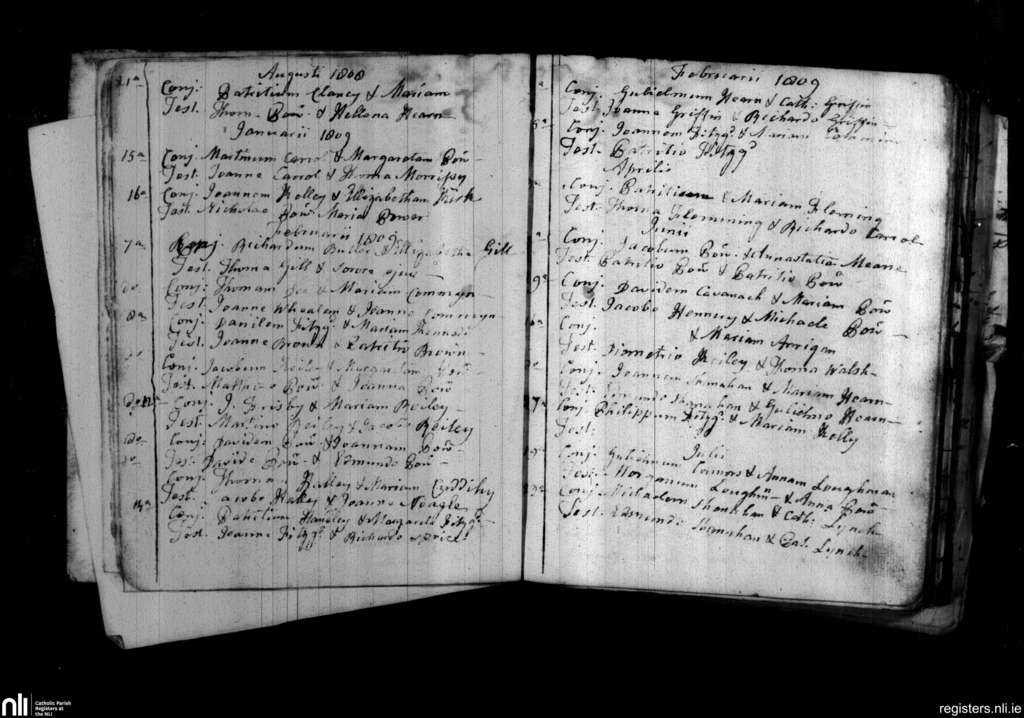 Augusti 1808
21a Conj: Patritium Clancy & Mariam
Test. Thom. Pow̄r & Hellena Hearn
Januarii 1809
15a Conj. Martinum Carrol & Margaretam Pow̄r
Test. Joanne Carrol & Thoma Morrissy
16a Conj: Joannem Kelley & Elizabetham Kirk
Test. Nicholao Pow̄r Maria Power
Februarii 1809
7a Conj. Richardum Butler & Elizabetha Gill
Test. Thoma Gill & Sorore ejus
do Conj: Thomam & Mariam Commyn
Test. Joanne Whealen & Joanne Commyn
8a Conj: Danilem Fitzgd. & Mariam
Test. Joanne Brown & Patritio Brown
do Conj. Jacobum & Margaretam
Test. Mattheo Pow̄r & Joanna Pow̄r
do Conj. J. Frisby & Mariam Reiley
Test. Reiley & Jacobo Reiley
do Conj. Davidem Pow̄r & Joannam Pow̄r
do Test. Davide Pow̄r & Edmundo Pow̄r
Conj. Thomam & Mariam Cuddihy
Test. Jacobo & Joanne Neagle
Conj. Patritium & Margareta Fitzgd.
Test. Joanne Fitzgd. & Richardo
Februarii 1809
Conj. Gulielmum Hearn & Cath: Griffin
Test. Joanne Griffin & Richardo Griffin
5a Conj. Joannem Fitzgd. & Mariam
Test. Patritio Fitzgd.
Aprilis
Conj. Patritium & Mariam Fleming
Test. Thoma Flemming & Richardo Carrol
Junii
Conj. Jacobum Pow̄r & Anastatia Meane
Test. Patritio Pow̄r & Patritio Pow̄r
9a Conj. Davidem Cavanach & Mariam Pow̄r
Test. Jacobo Hennesy & Michaele Pow̄r
do Conj. & Mariam Arrigan
Test. Diometrio Reiley & Thoma Walsh
Conj. Joannem Shanahan & Mariam Hearn
Test. Edmundo Shanahan & Gulielmo Hearn
7a Conj. Philippum Fitzgd. & Mariam Kelly
Test.
Julii
Conj. Gulielmum Connors & Annam Loughman
Test. Morganum Loughm̄n & Anna Pow̄r
Conj. Shanahan & Cath: Lynch
Test. Edmundo Shanahan & Cat. Lynch
nli
Catholic Parish
Registers at
the NLI
registers.nli.ie